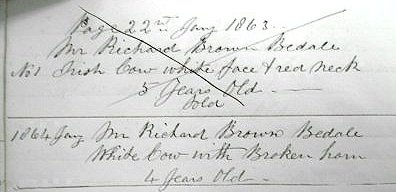 Page 22nd Jany 1863.
Mr Richard Brown Bedale
No 1 Irish Cow white face & red neck
5 Years Old
Sold
1864 Jany Mr Richard Brown Bedale
White Cow with Broken horn
4 Years Old